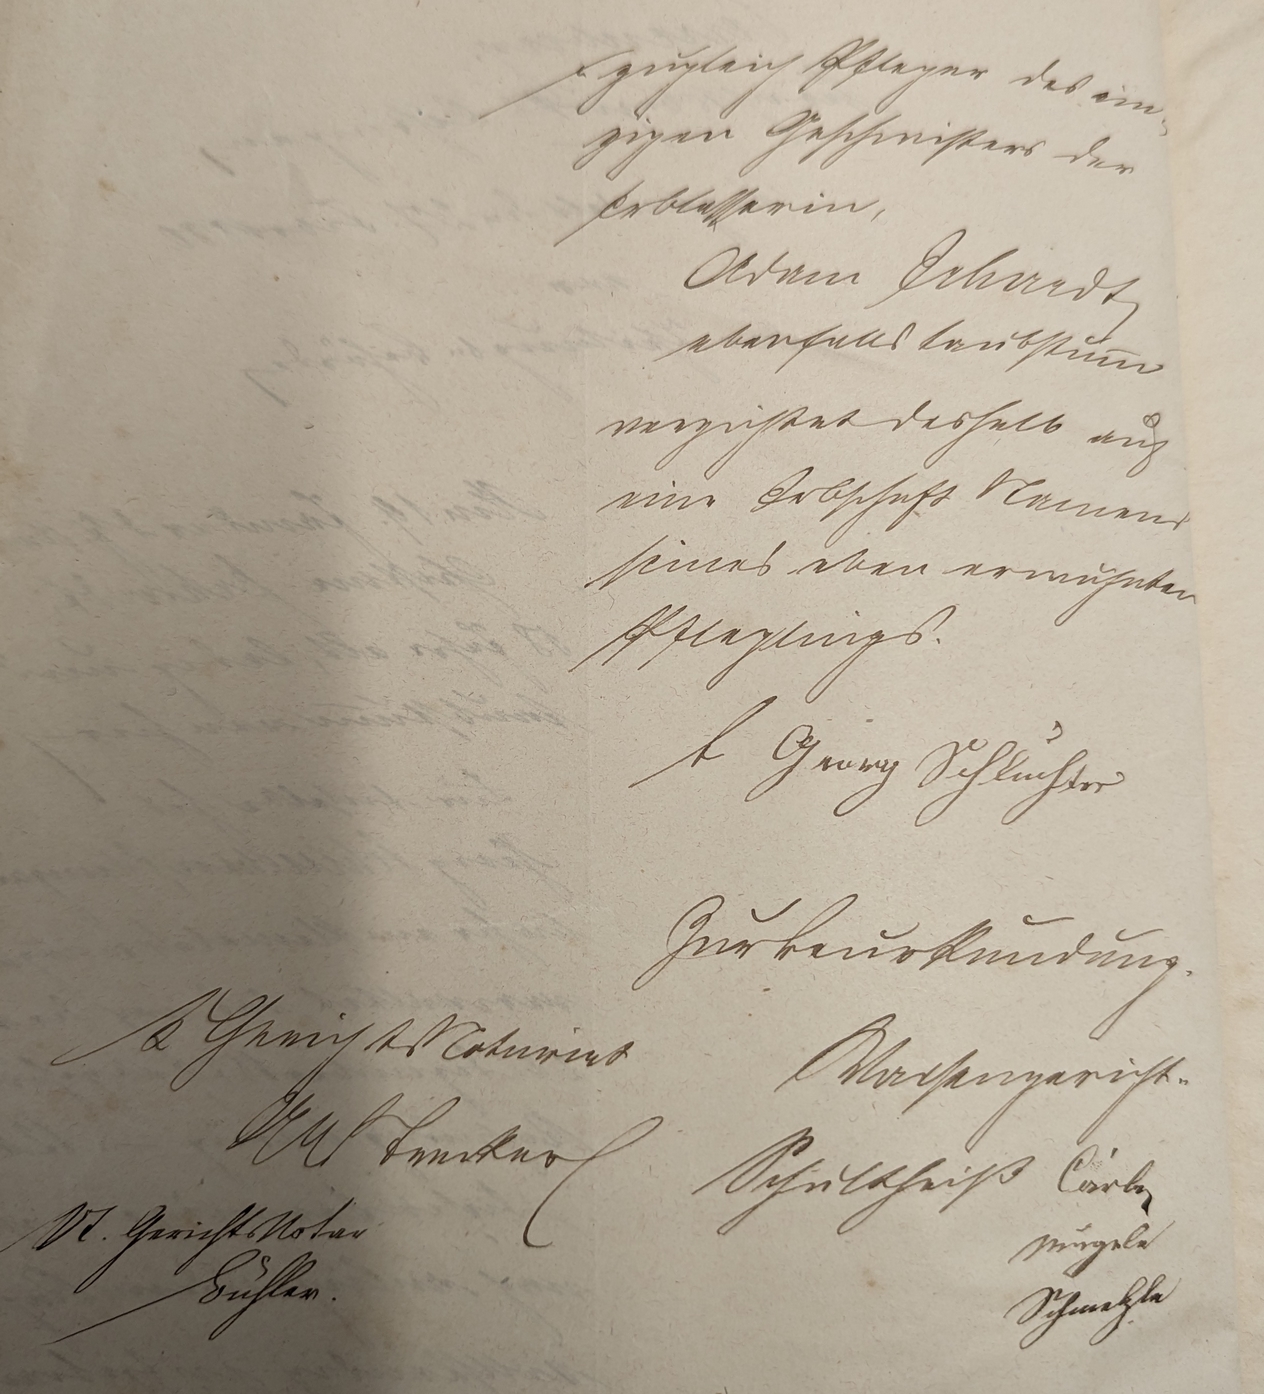 zugleich Pfleger des ein-
zigen Geschwisters der
Erblasserin,
Adam Erhardt
ebenfalls taubstumm
verzichtet deshalb auf
eine Erbschaft Namens
seines eben erwähnten
Pfleglings.
t Georg Schlüchter
Zur Beurkundung.
K Gerichts Notariat
Waisengericht.
Schultheiß
Vt. Gerichts Notar
Bühler.
Schmelzle